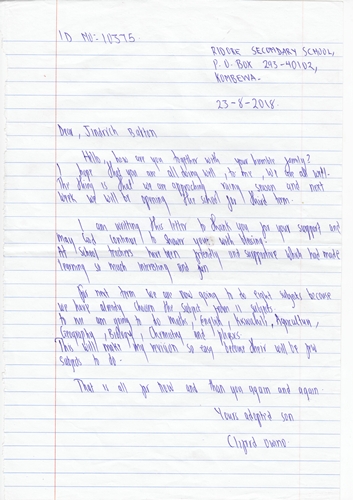 ID NO: 10375
RIDORE SECONDARY SCHOOL,
P.O. BOX 293-40102,
KOMBEWA.
23-8-2018
Dear, Jindrich Bakton
Hello, how are you together with your humble family?
I hope that you are all doing well, to me, we are all well.
The thing is that we are approching rainy season and next
week we will be opening our school for third term.
I am writting this letter to thank you for your support and
may God continue to shower you with blessing.
At school teachers have been patiently and supportive which had made
learning so much intresting and fun
For next term we are now going to do eight subjects because
we have already chosen the subject
to me am going to do maths, English, Kiswahili, Agriculture,
Geography, Biology, Chemistry and Physics
This will make my revision so easy because there will be few
subjects to do.
That is all for now and than you again and again
Yours adopted son
Clifred Owino